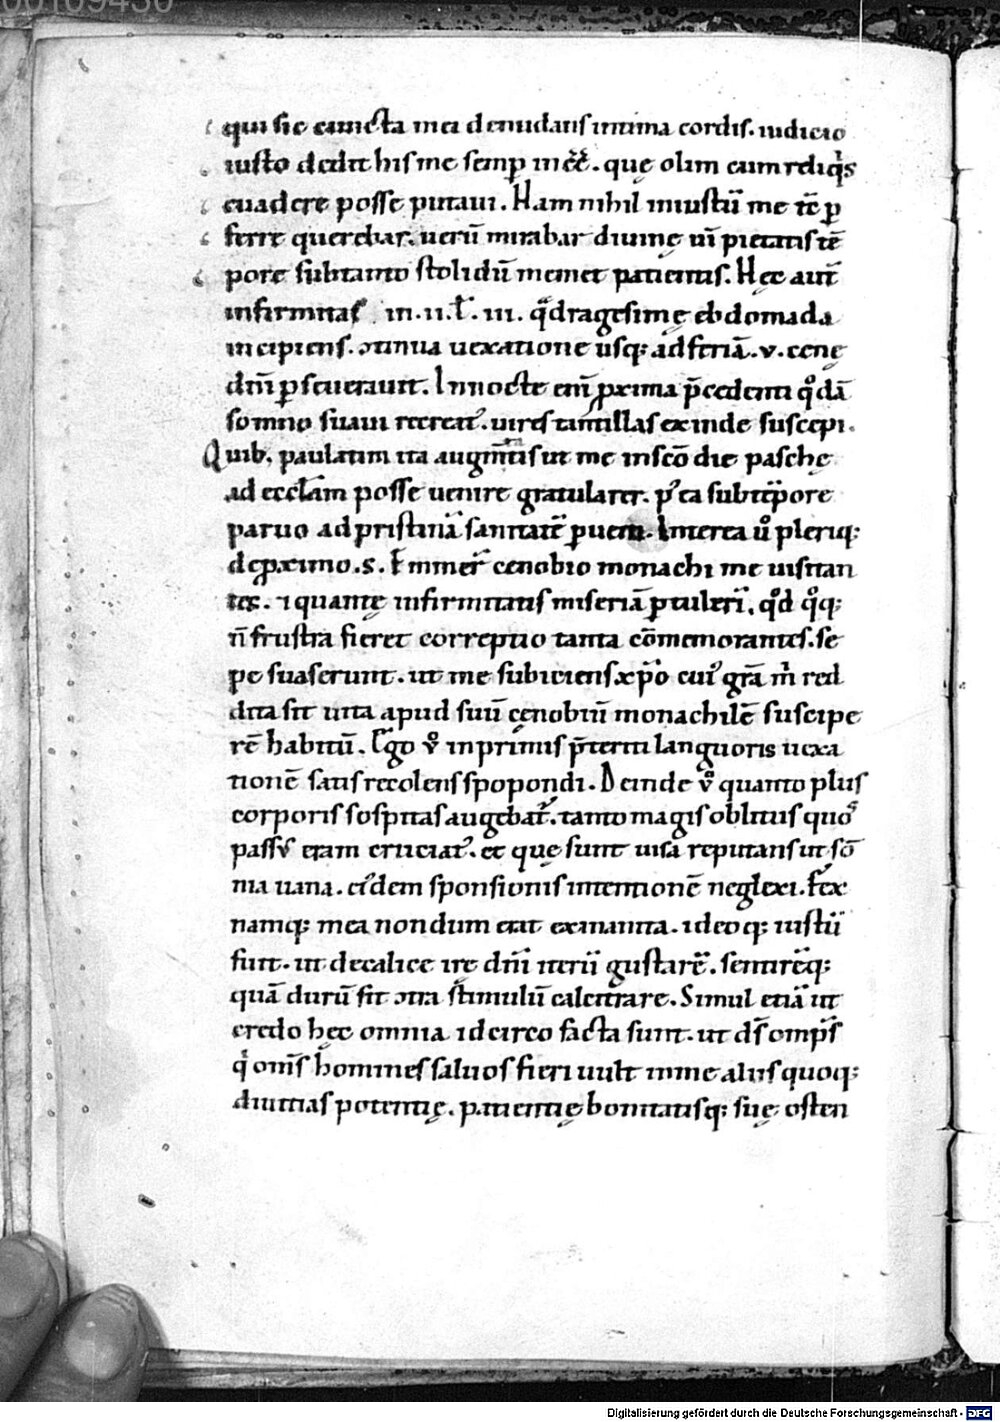 00109430
qui sic cuncta mea denudans intima cordis. iudicio
iusto dedit his me semp̄ in ēē. quę olim cum reliqⁱs
euadere posse putaui. Nam nihil iniustū me tē ꝑ
ferre querebar. uerū mirabar diuinę uī pietatis tē
pore sub tanto stolidū memet patientis. Hęc aut̄
infirmitas in .ii. ł .iii. qᵃdragesimę ebdomada
incipiens. ↄtinua uexatione usq; ad feriā .v. cenę
dn̄i ꝑseuerauit. In nocte eni̅ ꝓxima p̄cedenti qᵒdā
somno suaui recreat᾽. uires tantillas exinde suscepi.
Quib; paulatim ita augm̄tatis ut me in sc̄o die paschę
ad eccl̄am posse uenire gratularer. p᾽ ea sub tēpore
paruo ad pristinā sanitatē ꝑueni. Interea ů pleriq;
de ꝓximo .s. Emmer̄ cenobio monachi me uisitan
tes. ⁊ quantę infirmitatis miseriā ꝑtulerī. qᵒd qᵒq;
n̄ frustra fieret correptio tanta cōmemorantes. se
pe suaserunt. ut me subiciens xp̄o cui᾽ gr̄a m̄ red
dita sit uita apud suū cęnobiū monachilē suscipe
rē habitū. Ego ů inprimis p̄teriti languoris uexa
tionē satis recolens spopondi. Deinde ů quanto plus
corporis sospitas augebat᾽. tanto magis oblitus quoᵒ
passus eram cruciat᾽. et quę sunt uisa reputans ut sō
nia uana. ei᾽dem sponsionis intentionē neglexi. Fex
namq; mea nondum erat exinanita. ideoq; iustū
fuit. ut de calice irę dn̄i iterū gustarē. sentirēq;
quā durū sit ↄtra stimulū calcitrare. Simul etiā ut
credo hęc omnia idcirco facta sunt. ut ds̄ omp̄s
qⁱ om̄s homines saluos fieri uult in me aliis quoq;
diuitias potentię. patientię bonitatisq; suę osten
Digitalisierung gefördert durch die Deutsche Forschungsgemeinschaft - DFG